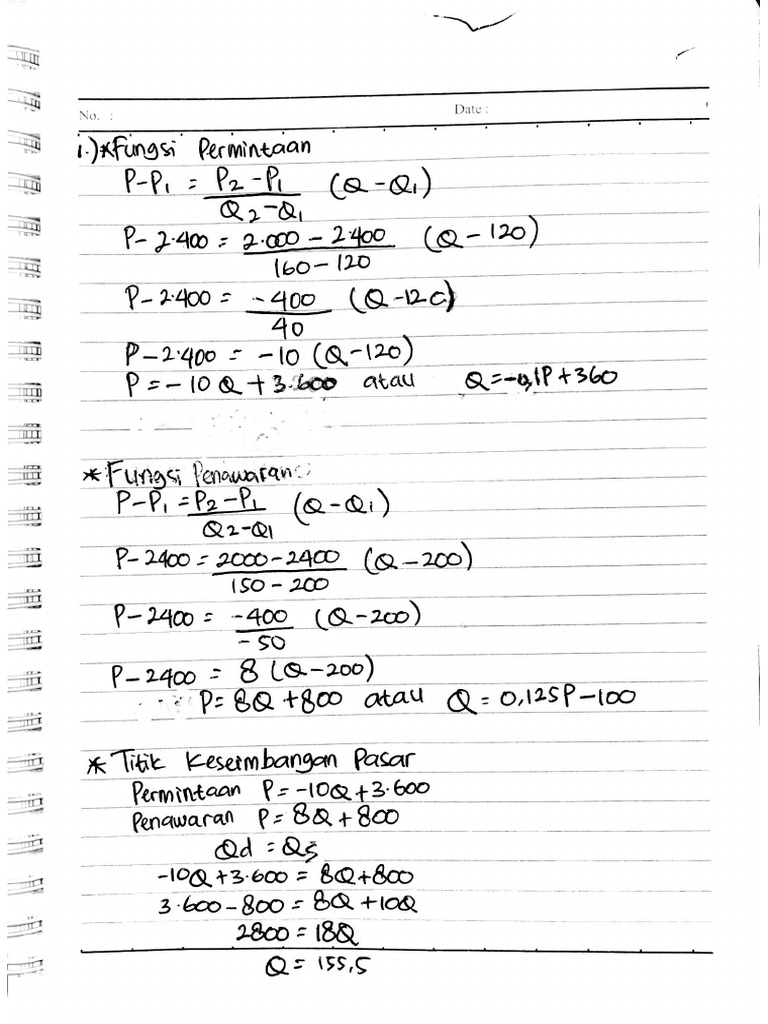 No. :
Date :
1.)*Fungsi Permintaan
P-P₁ = P₂-P₁ / Q₂-Q₁ (Q-Q₁)
P-2.400 = 2.000-2400 / 160-120 (Q-120)
P-2.400 = -400 / 40 (Q-120)
P-2.400 = -10 (Q-120)
P=-10Q+3.600 atau Q=-0,1P+360
*Fungsi Penawaran:
P-P₁ = P₂-P₁ / Q₂-Q₁ (Q-Q₁)
P-2400 = 2000-2400 / 150-200 (Q-200)
P-2400 = -400 / -50 (Q-200)
P-2400 = 8 (Q-200)
P=8Q+800 atau Q=0,125P-100
* Titik Keseimbangan Pasar
Permintaan P=-10Q+3.600
Penawaran P=8Q+800
Qd = Qs
-10Q+3.600 = 8Q+800
3.600-800 = 8Q+10Q
2800 = 18Q
Q = 155,5